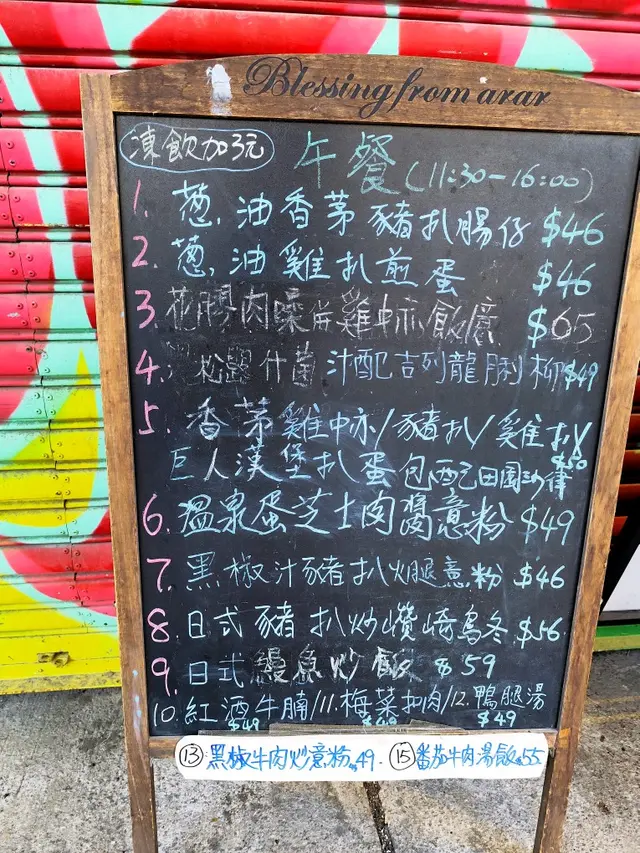 Blessing from arar
凍飲加3元
午餐(11:30-16:00)
1. 葱油香茅豬扒腸仔 $46
2. 葱油雞扒煎蛋 $46
3. 花膠肉燥拼雞中亦飯 $65
4. 松露什菌汁配吉列龍脷柳 $49
5. 香茅雞中亦/豬扒/雞扒/
巨人漢堡扒蛋包配田園沙律 $50
6. 溫泉蛋芝士肉醬意粉 $49
7. 黑椒汁豬扒火腿意粉 $46
8. 日式豬扒炒讚崎烏冬 $56
9. 日式鰻魚炒飯 $59
10. 紅酒牛腩/11. 梅菜扣肉/12. 鴨腿湯
$49 $49 $49
⑬黑椒牛肉炒意粉$49. ⑮番茄牛肉湯飯$55